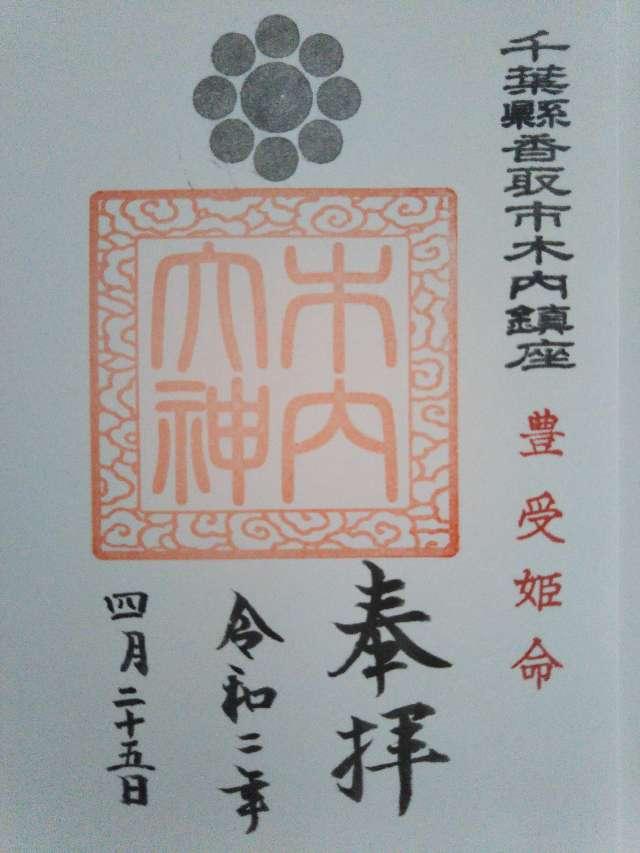 千葉縣香取市木内鎮座
豊受姫命
木内
大神
奉拝
令和二年
四月二十五日